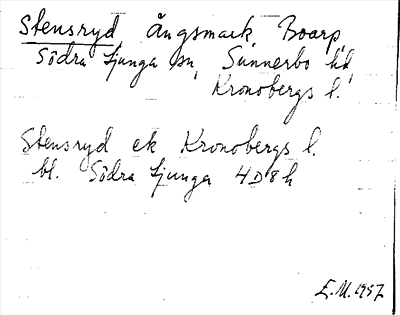 Stensryd Ängsmark Boarp,
Södra Ljunga sn, Sunnerbo hd,
Kronobergs l.
Stensryd ek Kronobergs l.
bl. Södra Ljunga 4D8h
E.M. 1957